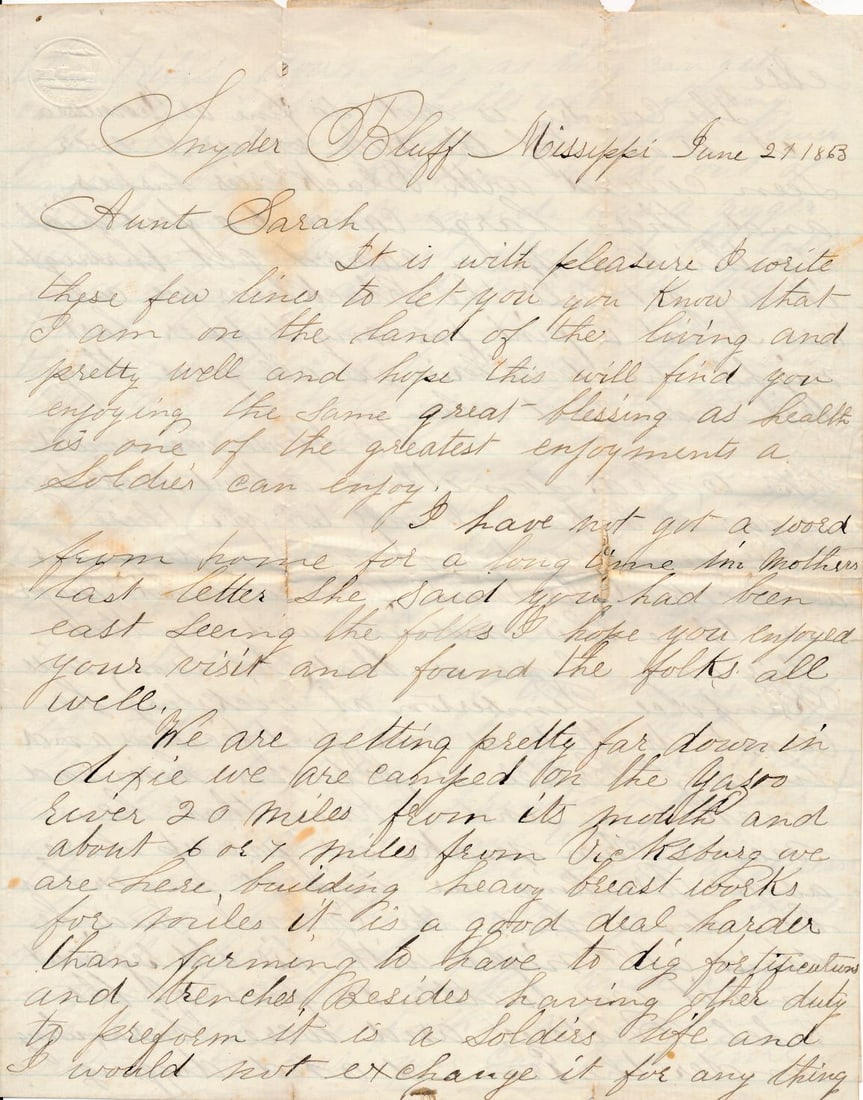 Snyder Bluff Missippi June 21 1863
Aunt Sarah
It is with pleasure I write
these few lines to let you you know that
I am on the land of the living and
pretty well and hope this will find you
enjoying the same great blessing as health
is one of the greatest enjoyments a
Soldier can enjoy.
I have not got a word
from home for a long time in Mothers
last letter she said you had been
east seeing the folks I hope you enjoyed
your visit and found the folks all
well.
We are getting pretty far down in
dixie we are camped on the Yasoo
river 20 miles from its mouth and
about 6 or 7 miles from Vicksburg we
are here building heavy breast works
for miles it is a good deal harder
than farming to have to dig fortifications
and trenches Besides having other duty
to preform it is a Soldiers life and
I would not exchange it for any thing